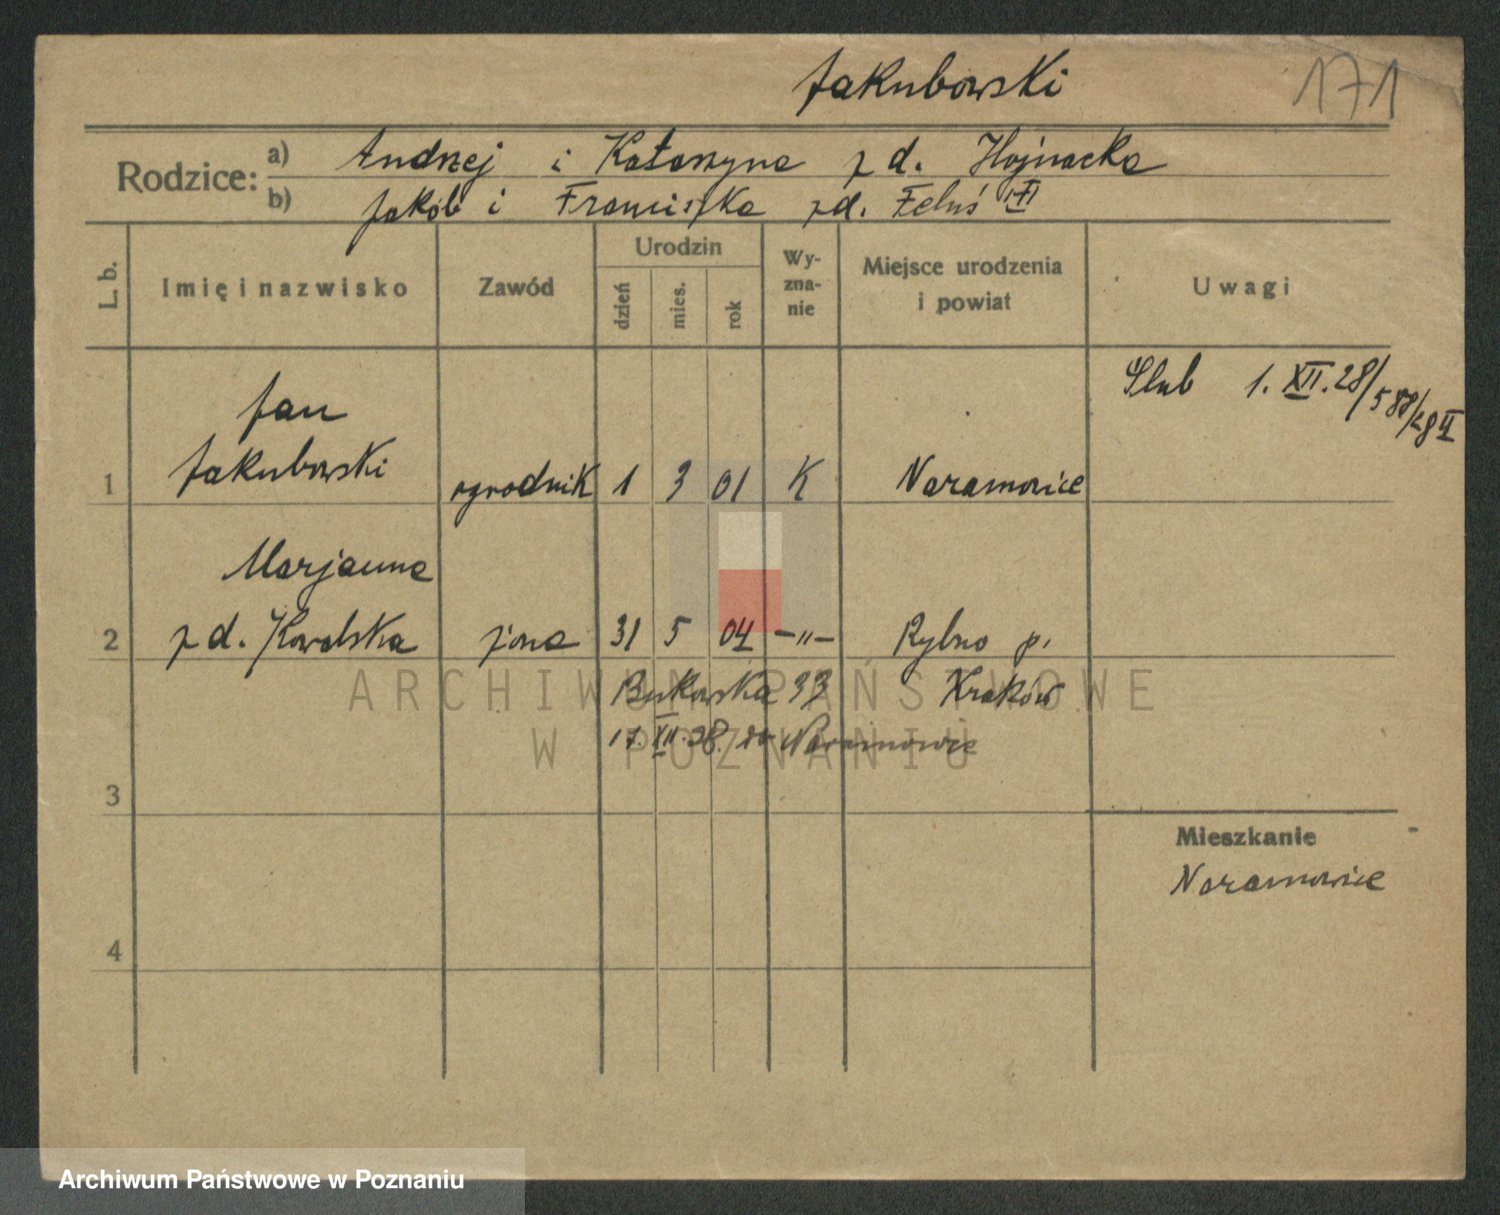 Jakubowski 171
Rodzice:
a) Andrzej i Katarzyna z d. Wojnacka
b) Jakób i Franciszka z d. Feluś
L. b.
Imię i nazwisko
Zawód
Urodzin
dzień
mies.
rok
Wy-
zna-
nie
Miejsce urodzenia
i powiat
Uwagi
Ślub 1. XII. 28/588/28 II
Jan
1 Jakubowski ogrodnik 1 3 01 K Naramowice
Marjanna
2 z d. Kowalska żona 31 5 04 —"— Rybno p.
Bukowska 33 Kraków
17. XII. 38. do Naramowic
3
Mieszkanie
Naramowice
4
ARCHIWUM PAŃSTWOWE
W POZNANIU
Archiwum Państwowe w Poznaniu